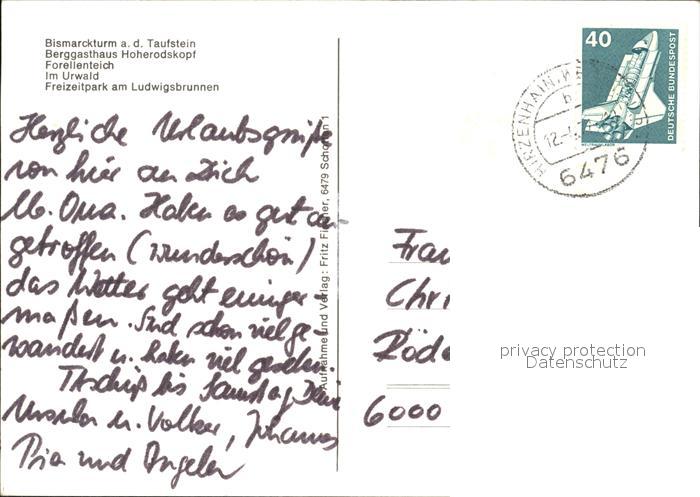 Bismarckturm a. d. Taufstein
Berggasthaus Hoherodskopf
Forellenteich
Im Urwald
Freizeitpark am Ludwigsbrunnen
Herzliche Urlaubsgrüße
von hier an Dich
lb. Oma. Haben es gut an-
getroffen (wunderschön)
das Wetter geht einiger-
maßen. Sind schon viel ge-
wandert u. haben viel gesehen.
Tschüß bis Samstag Deine
Ursula u. Volker, Johannes
Pia und Angela
Aufnahme und Verlag: Fritz Fischer, 6479 Schotten 1
40
DEUTSCHE BUNDESPOST
HIRZENHAIN
b
12.
6476
Frau
Chri
Röde
6000
privacy protection
Datenschutz